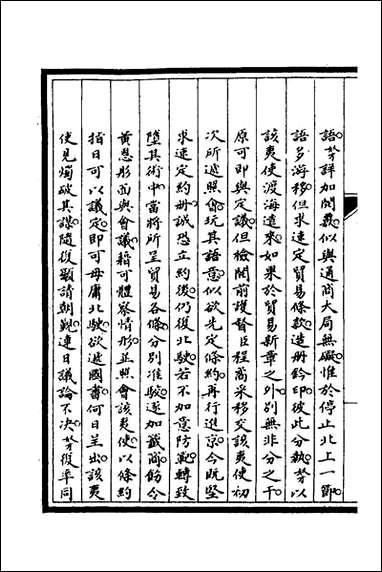 語。芳詳加閱覈。似與通商大局無礙。惟於停止北上一節。
語多游移。但求速定貿易條款。造册鈐印。彼此分執。芳以
該夷使渡海遠來。如果於貿易新章之外。別無非分之干。
原可即與定議。但檢閱前護督臣程矞采移交該夷使初
次所遞照會。玩其語意。似欲先定條約。再行進京。今既堅
求速定約册。誠恐立約後。仍復北駛。若不加意防範。轉致
墮其術中。當將所呈貿易各條。分別准駁。逐加籤商。飭令
黃恩彤面與會議。藉可體察情形。並照會該夷使。以條約
指日可以議定。即可毋庸北駛。欲遞國書。何日呈出。該夷
使見燭破其謀。隨復顯請朝覲。連日議論不決。芳復率同